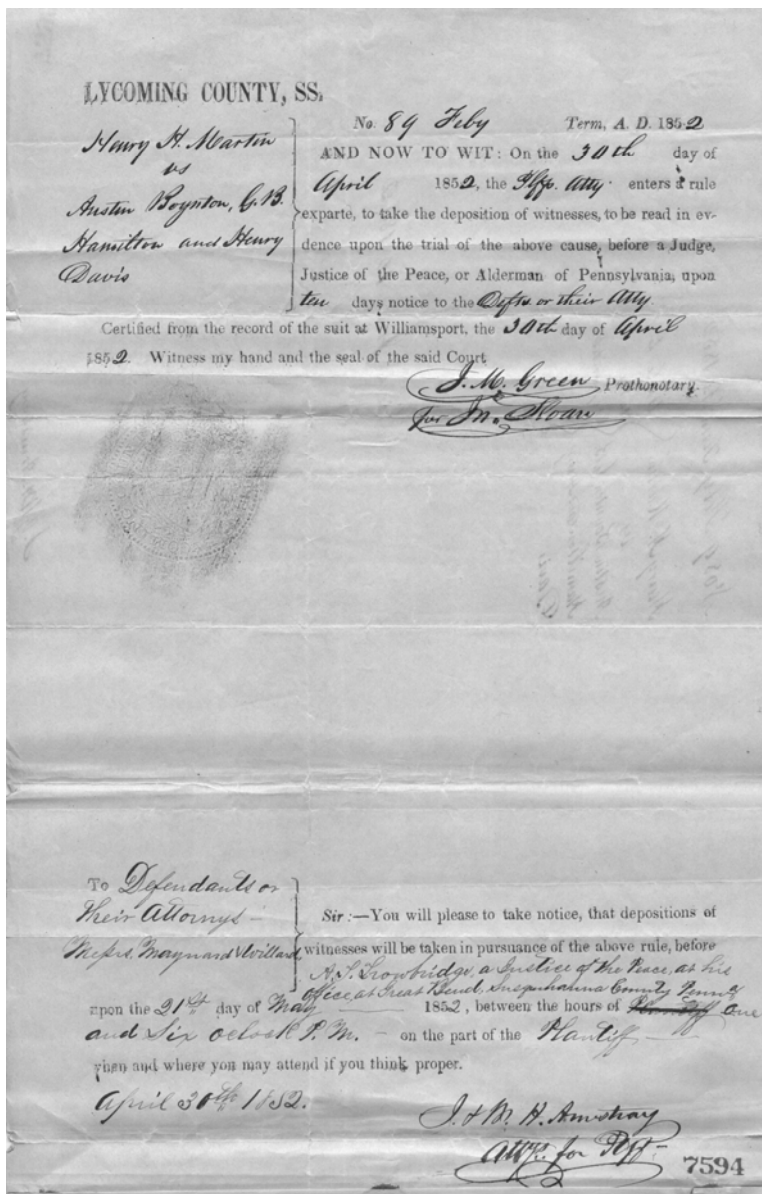 LYCOMING COUNTY, SS.
Henry H. Martin
vs
Austin Boynton, G. B.
Hamilton and Henry
Davis
No. 89 Feby Term, A. D. 1852
AND NOW TO WIT: On the 30th day of
April 1852, the Plffs. Atty. enters a rule
exparte, to take the deposition of witnesses, to be read in ev-
dence upon the trial of the above cause, before a Judge,
Justice of the Peace, or Alderman of Pennsylvania, upon
ten days notice to the Defts or their Atty.
Certified from the record of the suit at Williamsport, the 30th day of April
1852. Witness my hand and the seal of the said Court
J. M. Green Prothonotary.
for Jn. Sloan
To Defendants or
their Attorneys
Messrs. Maynard & Willard
Sir:—You will please to take notice, that depositions of
witnesses will be taken in pursuance of the above rule, before
A. S. Trowbridge, a Justice of the Peace, at his
office, at Great Bend Susquehanna County Penna
upon the 21st day of May 1852, between the hours of One
and Six oclock P. M. – on the part of the Plantiff
when and where you may attend if you think proper.
April 30th 1852.
J. & W. H. Armstrong
Attys. for Plff
7594